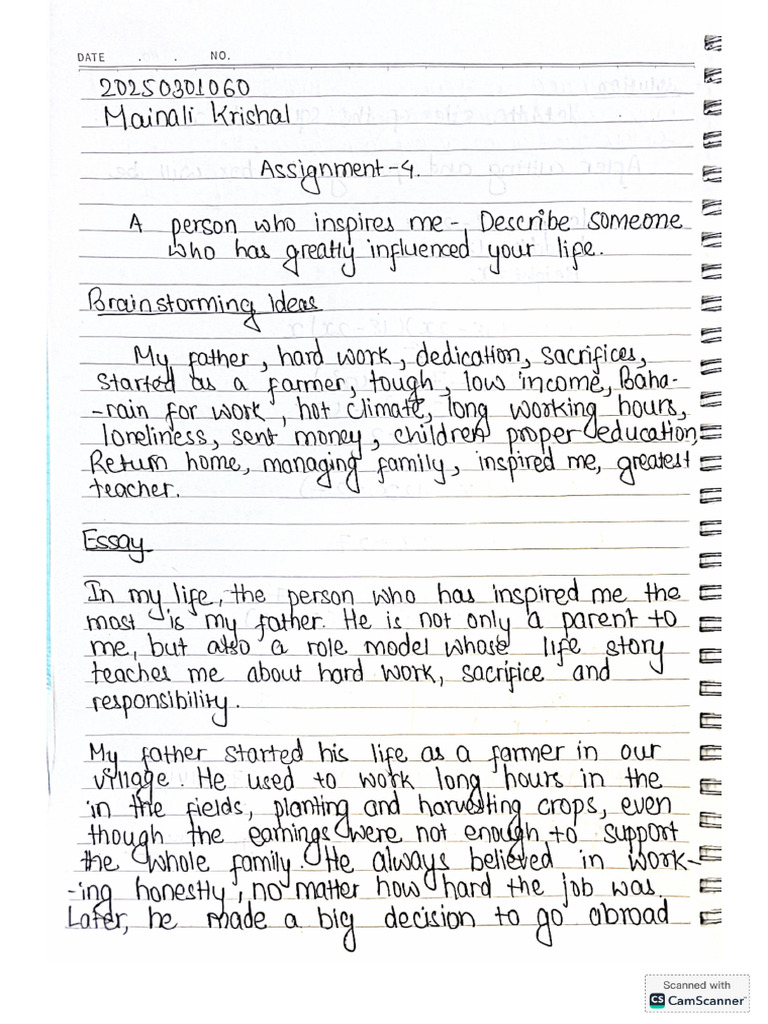 DATE . . NO.
20250301060
Mainali Krishal
Assignment-4.
A person who inspires me -, Describe someone
who has greatly influenced your life.
Brainstorming Ideas
My father, hard work, dedication, sacrifices,
started as a farmer, tough, low income, Baha-
-rain for work, hot climate, long working hours,
loneliness, sent money, children proper education,
Return home, managing family, inspired me, greatest
teacher.
Essay
In my life, the person who has inspired me the
most is my father. He is not only a parent to
me, but also a role model whose life story
teaches me about hard work, sacrifice and
responsibility.
My father started his life as a farmer in our
village. He used to work long hours in the
in the fields, planting and harvesting crops, even
though the earnings were not enough to support
the whole family. He always believed in work-
-ing honestly, no matter how hard the job was.
Later, he made a big decision to go abroad
Scanned with
CS CamScanner